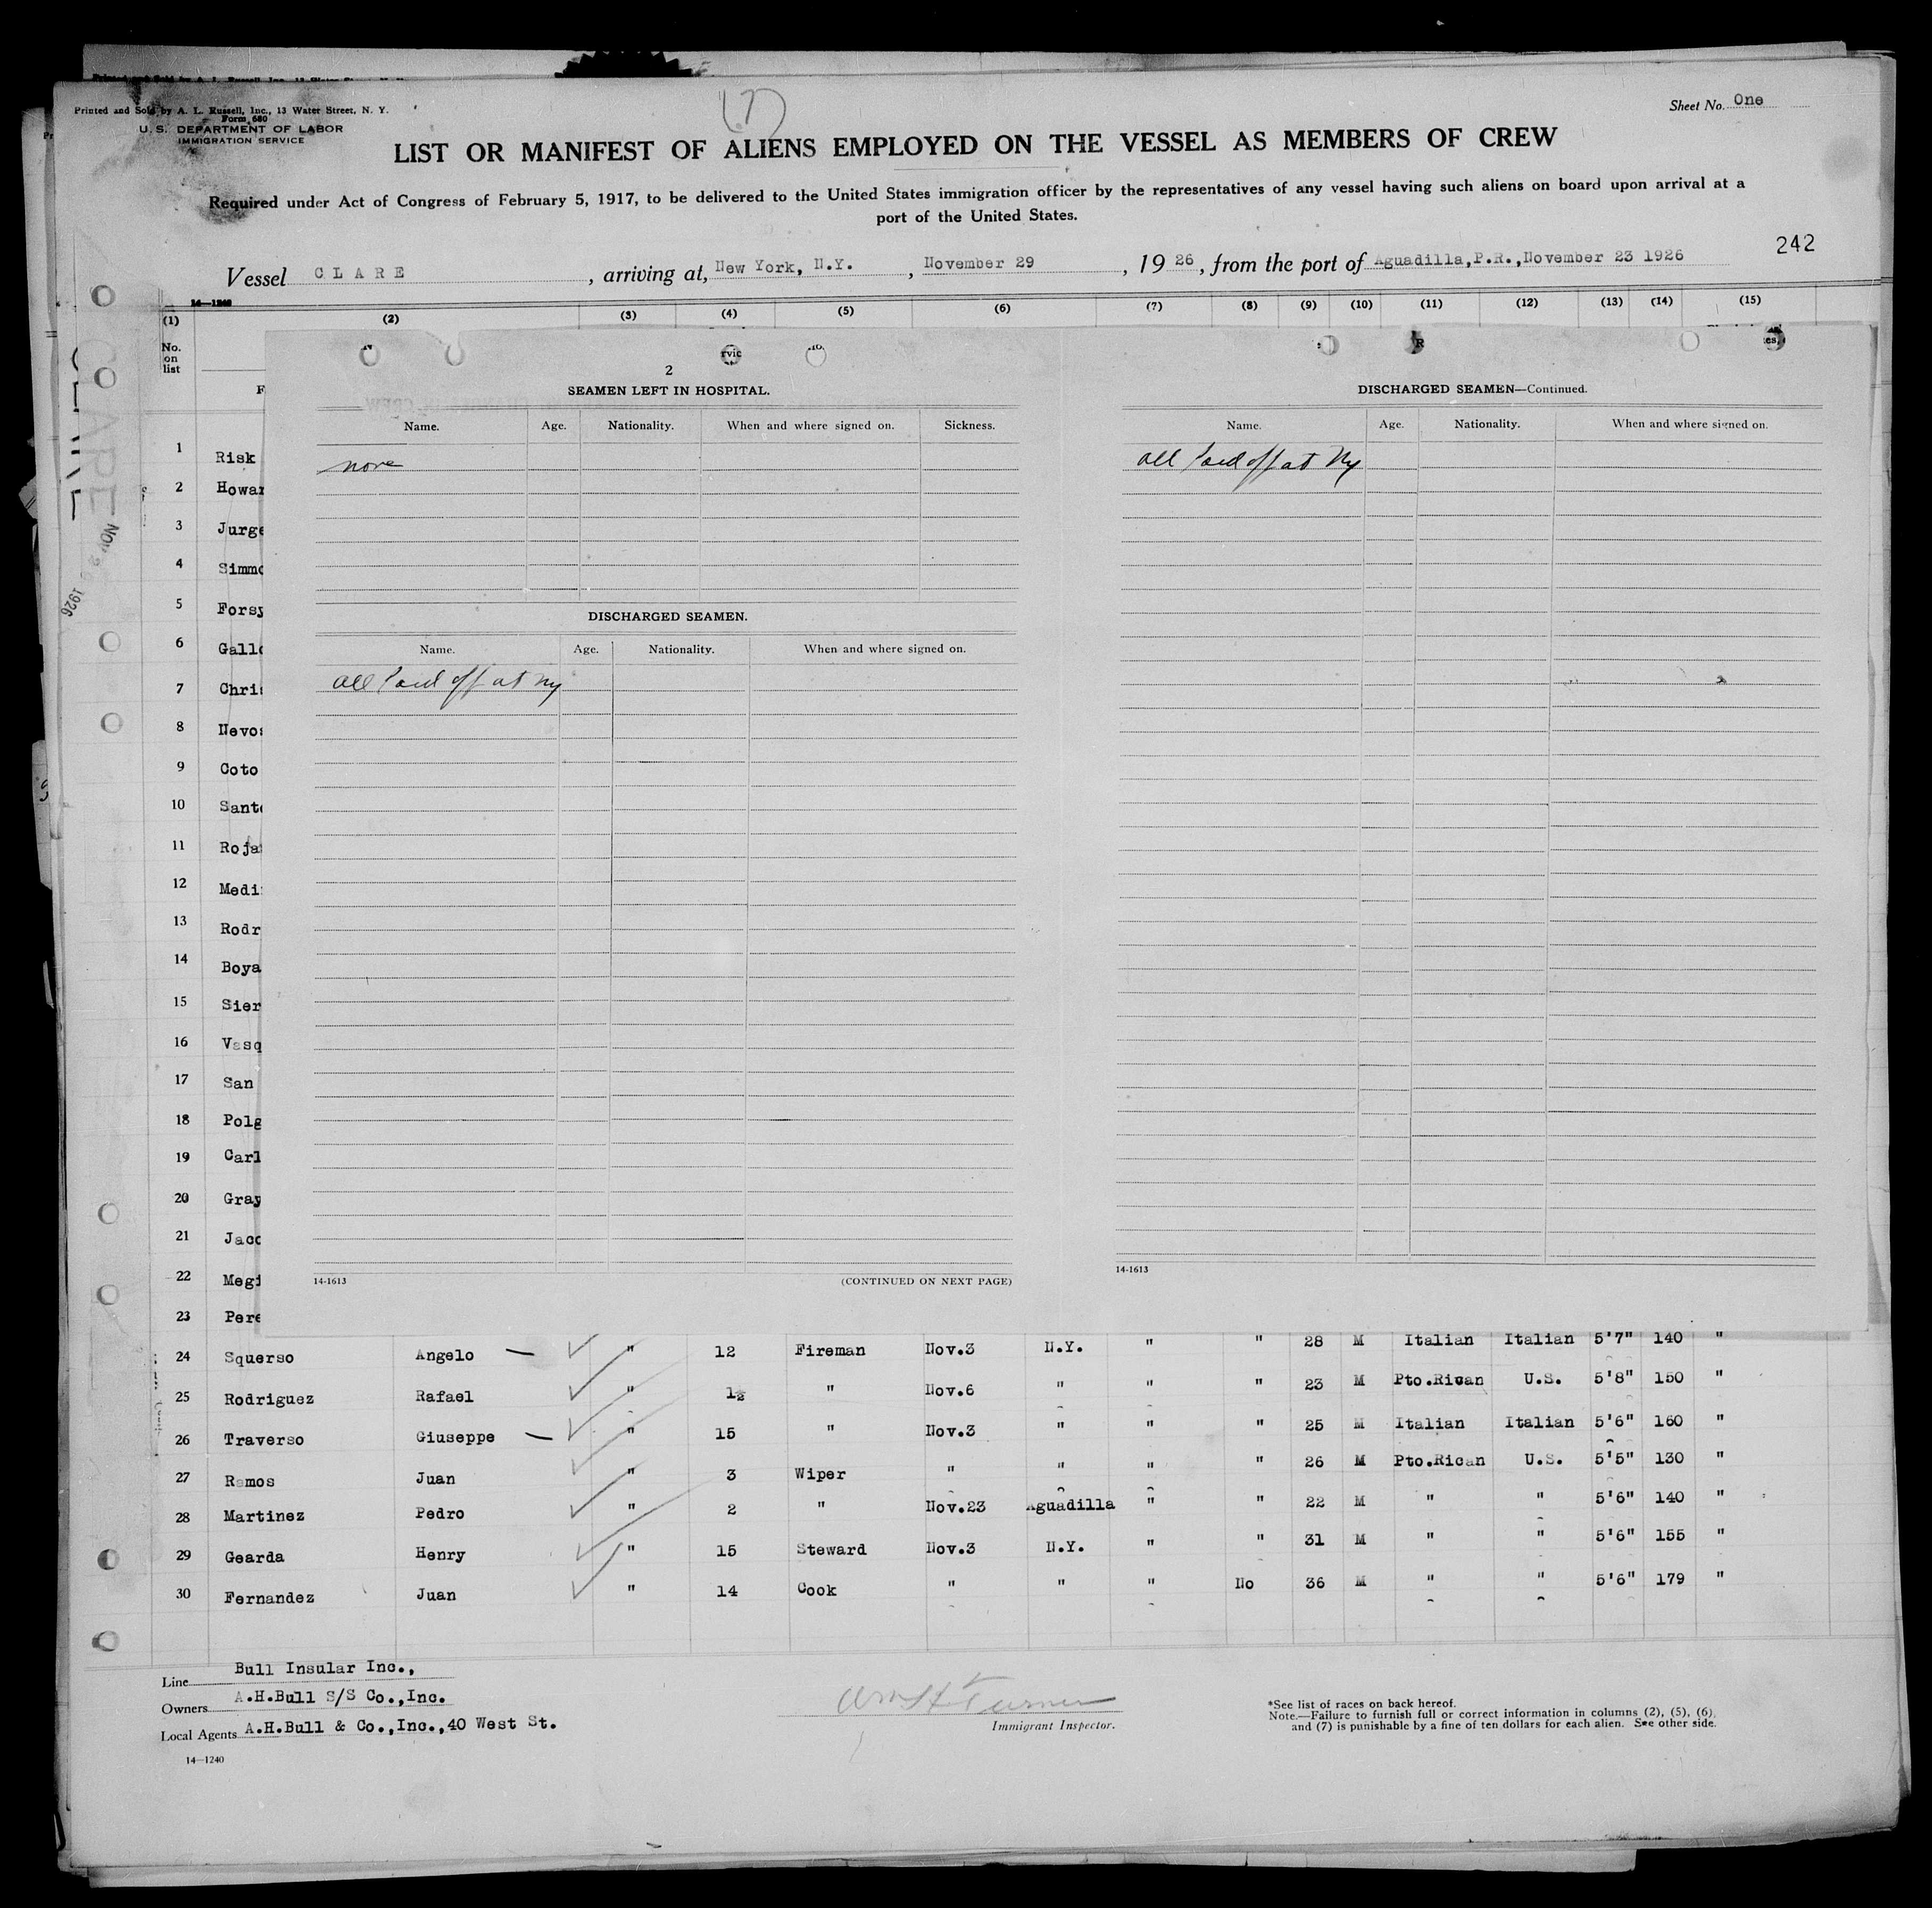 Printed and Sold by A. L. Russell, Inc., 13 Water Street, N. Y.
Form 680
U. S. DEPARTMENT OF LABOR
IMMIGRATION SERVICE
(7)
Sheet No. One
LIST OR MANIFEST OF ALIENS EMPLOYED ON THE VESSEL AS MEMBERS OF CREW
Required under Act of Congress of February 5, 1917, to be delivered to the United States immigration officer by the representatives of any vessel having such aliens on board upon arrival at a
port of the United States.
242
Vessel CLARE, arriving at, New York, N.Y., November 29, 1926, from the port of Aguadilla, P.R., November 23 1926
14-1240
(1) (2) (3) (4) (5) (6) (7) (8) (9) (10) (11) (12) (13) (14) (15)
No. on list
CLARE
NOV 29 1926
2
SEAMEN LEFT IN HOSPITAL.
Name. Age. Nationality. When and where signed on. Sickness.
none
DISCHARGED SEAMEN.
Name. Age. Nationality. When and where signed on.
all Paid off at Ny
14-1613
(CONTINUED ON NEXT PAGE)
DISCHARGED SEAMEN—Continued.
Name. Age. Nationality. When and where signed on.
all Paid off at Ny
14-1613
1 Risk
2 Howar
3 Jurge
4 Simmo
5 Forsy
6 Gallo
7 Chris
8 Nevos
9 Coto
10 Santo
11 Rojas
12 Medi
13 Rodr
14 Boya
15 Sier
16 Vasq
17 San
18 Polg
19 Carl
20 Gray
21 Jaco
22 Megi
23 Pere
24 Squerso Angelo — " 12 Fireman Nov.3 N.Y. " " 28 M Italian Italian 5'7" 140 "
25 Rodriguez Rafael " 1½ " Nov.6 " " " 23 M Pto.Rican U.S. 5'8" 150 "
26 Traverso Giuseppe — " 15 " Nov.3 " " " 25 M Italian Italian 5'6" 160 "
27 Ramos Juan " 3 Wiper " " " " 26 M Pto.Rican U.S. 5'5" 130 "
28 Martinez Pedro " 2 " Nov.23 Aguadilla " " 22 M " " 5'6" 140 "
29 Gearda Henry " 15 Steward Nov.3 N.Y. " " 31 M " " 5'6" 155 "
30 Fernandez Juan " 14 Cook " " " No 36 M " " 5'6" 179 "
Line Bull Insular Inc.,
Owners A.H.Bull S/S Co.,Inc.
Local Agents A.H.Bull & Co.,Inc.,40 West St.
14-1240
Wm H Turner
Immigrant Inspector.
*See list of races on back hereof.
Note.—Failure to furnish full or correct information in columns (2), (5), (6),
and (7) is punishable by a fine of ten dollars for each alien. See other side.